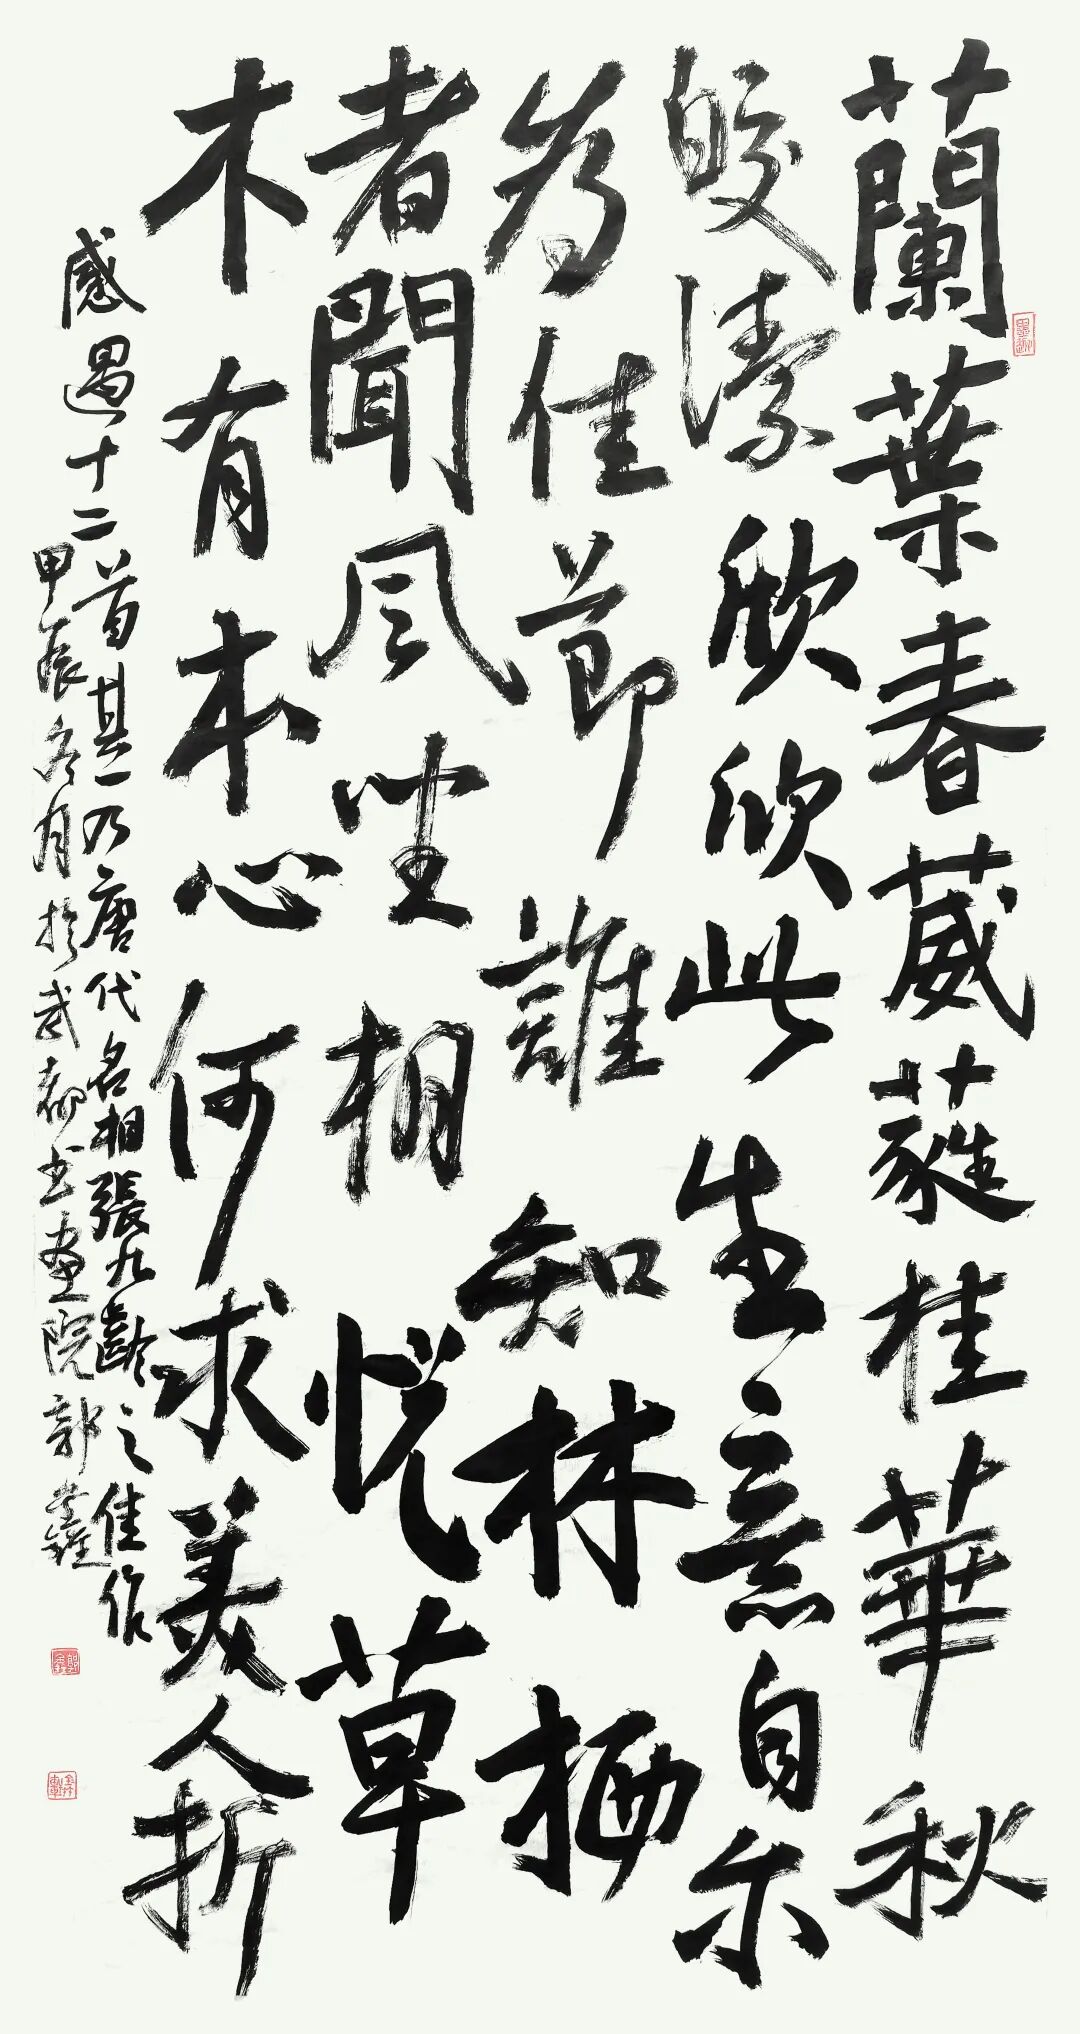 蘭葉春葳蕤桂華秋
皎潔欣欣此生意自尔
為佳節誰知林栖
者聞風坐相悦草
木有本心何求美人折
感遇十二首其一乃唐代名相張九齡之佳作
甲辰冬月於武都书畫院郭